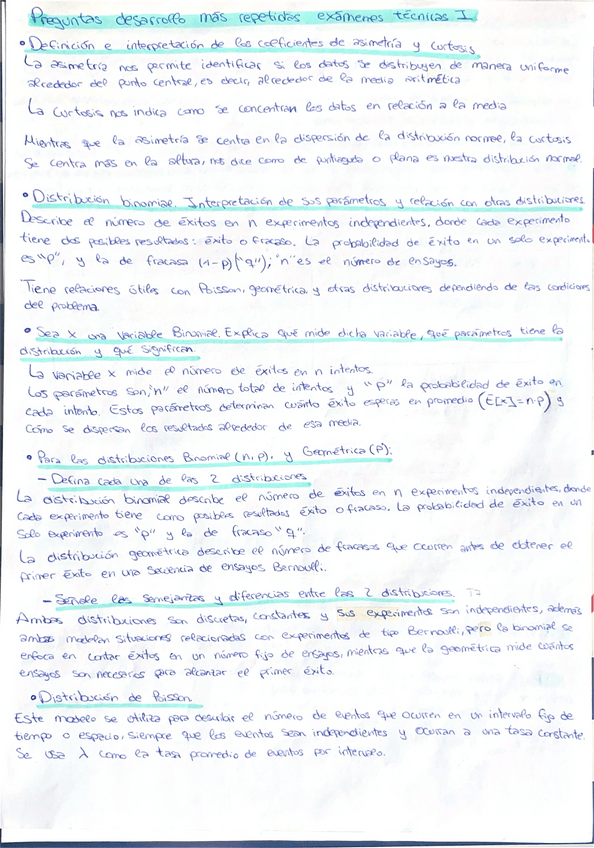 Preguntas desarrollo más repetidas exámenes técnicas I
• Definición e interpretación de los coeficientes de asimetría y curtosis
La asimetría nos permite identificar si los datos se distribuyen de manera uniforme
alrededor del punto central, es decir, alrededor de la media aritmética
La curtosis nos indica como se concentran los datos en relación a la media
Mientras que la asimetría se centra en la dispersión de la distribución normal, la curtosis
se centra más en la altura, nos dice como de puntiaguda o plana es nuestra distribución normal.
• Distribución binomial. Interpretación de sus parámetros y relación con otras distribuciones
Describe el número de éxitos en n experimentos independientes, donde cada experimento
tiene dos posibles resultados: éxito o fracaso. La probabilidad de éxito en un solo experimento
es "p", y la de fracaso (1-p)("q"); "n" es el número de ensayos.
Tiene relaciones útiles con Poisson, geométrica y otras distribuciones dependiendo de las condiciones
del problema.
• Sea X una variable Binomial. Explica qué mide dicha variable, qué parámetros tiene la
distribución y qué significan.
La variable X mide el número de éxitos en n intentos.
Los parámetros son, "n" el número total de intentos y "p" la probabilidad de éxito en
cada intento. Estos parámetros determinan cuánto éxito esperas en promedio (E[x]=n·p) y
cómo se dispersan los resultados alrededor de esa media.
• Para las distribuciones Binomial (n,p). y Geométrica (P):
- Defina cada una de las 2 distribuciones
La distribución binomial describe el número de éxitos en n experimentos independientes, donde
cada experimento tiene como posibles resultados éxito o fracaso. La probabilidad de éxito en un
solo experimento es "p" y la de fracaso "q".
La distribución geométrica describe el número de fracasos que ocurren antes de obtener el
primer éxito en una secuencia de ensayos Bernoulli.
- Señale las semejanzas y diferencias entre las 2 distribuciones. T2
Ambas distribuciones son discretas, constantes y sus experimentos son independientes, además
ambas modelan situaciones relacionadas con experimentos de tipo Bernoulli, pero la binomial se
enfoca en contar éxitos en un número fijo de ensayos, mientras que la geométrica mide cuántos
ensayos son necesarios para alcanzar el primer éxito.
• Distribución de Poisson
Este modelo se utiliza para describir el número de eventos que ocurren en un intervalo fijo de
tiempo o espacio, siempre que los eventos sean independientes y ocurran a una tasa constante.
Se usa λ como la tasa promedio de eventos por intervalo.